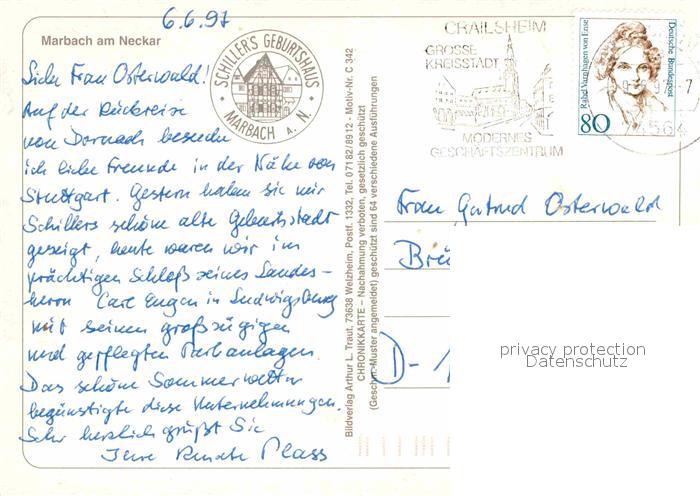 6.6.97
Marbach am Neckar
SCHILLER'S GEBURTSHAUS
MARBACH A. N.
Liebe Frau Osterwald!
Auf der Rückreise
von Dornach besuche
ich liebe Freunde in der Nähe von
Stuttgart. Gestern haben sie mir
Schillers schöne alte Geburtsstadt
gezeigt, heute waren wir im
prächtigen Schloß seines Landes-
herrn Carl Eugen in Ludwigsburg
mit seinen großzügigen
und gepflegten Parkanlagen.
Das schöne Sommerwetter
begünstigte diese Unternehmungen.
Sehr herzlich grüßt Sie
Ihre Renate Plass
Bildverlag Arthur L. Traut, 73638 Welzheim, Postf. 1332, Tel. 07182/8912 - Motiv-Nr. C 342
CHRONIKKARTE – Nachahmung verboten, gesetzlich geschützt
(Geschm.-Muster angemeldet) geschützt sind 64 verschiedene Ausführungen
CRAILSHEIM
GROSSE
KREISSTADT
MODERNES
GESCHÄFTSZENTRUM
Rahel Varnhagen von Ense
Deutsche Bundespost
80
Frau Gertrud Osterwald
Brü
D-1
privacy protection
Datenschutz